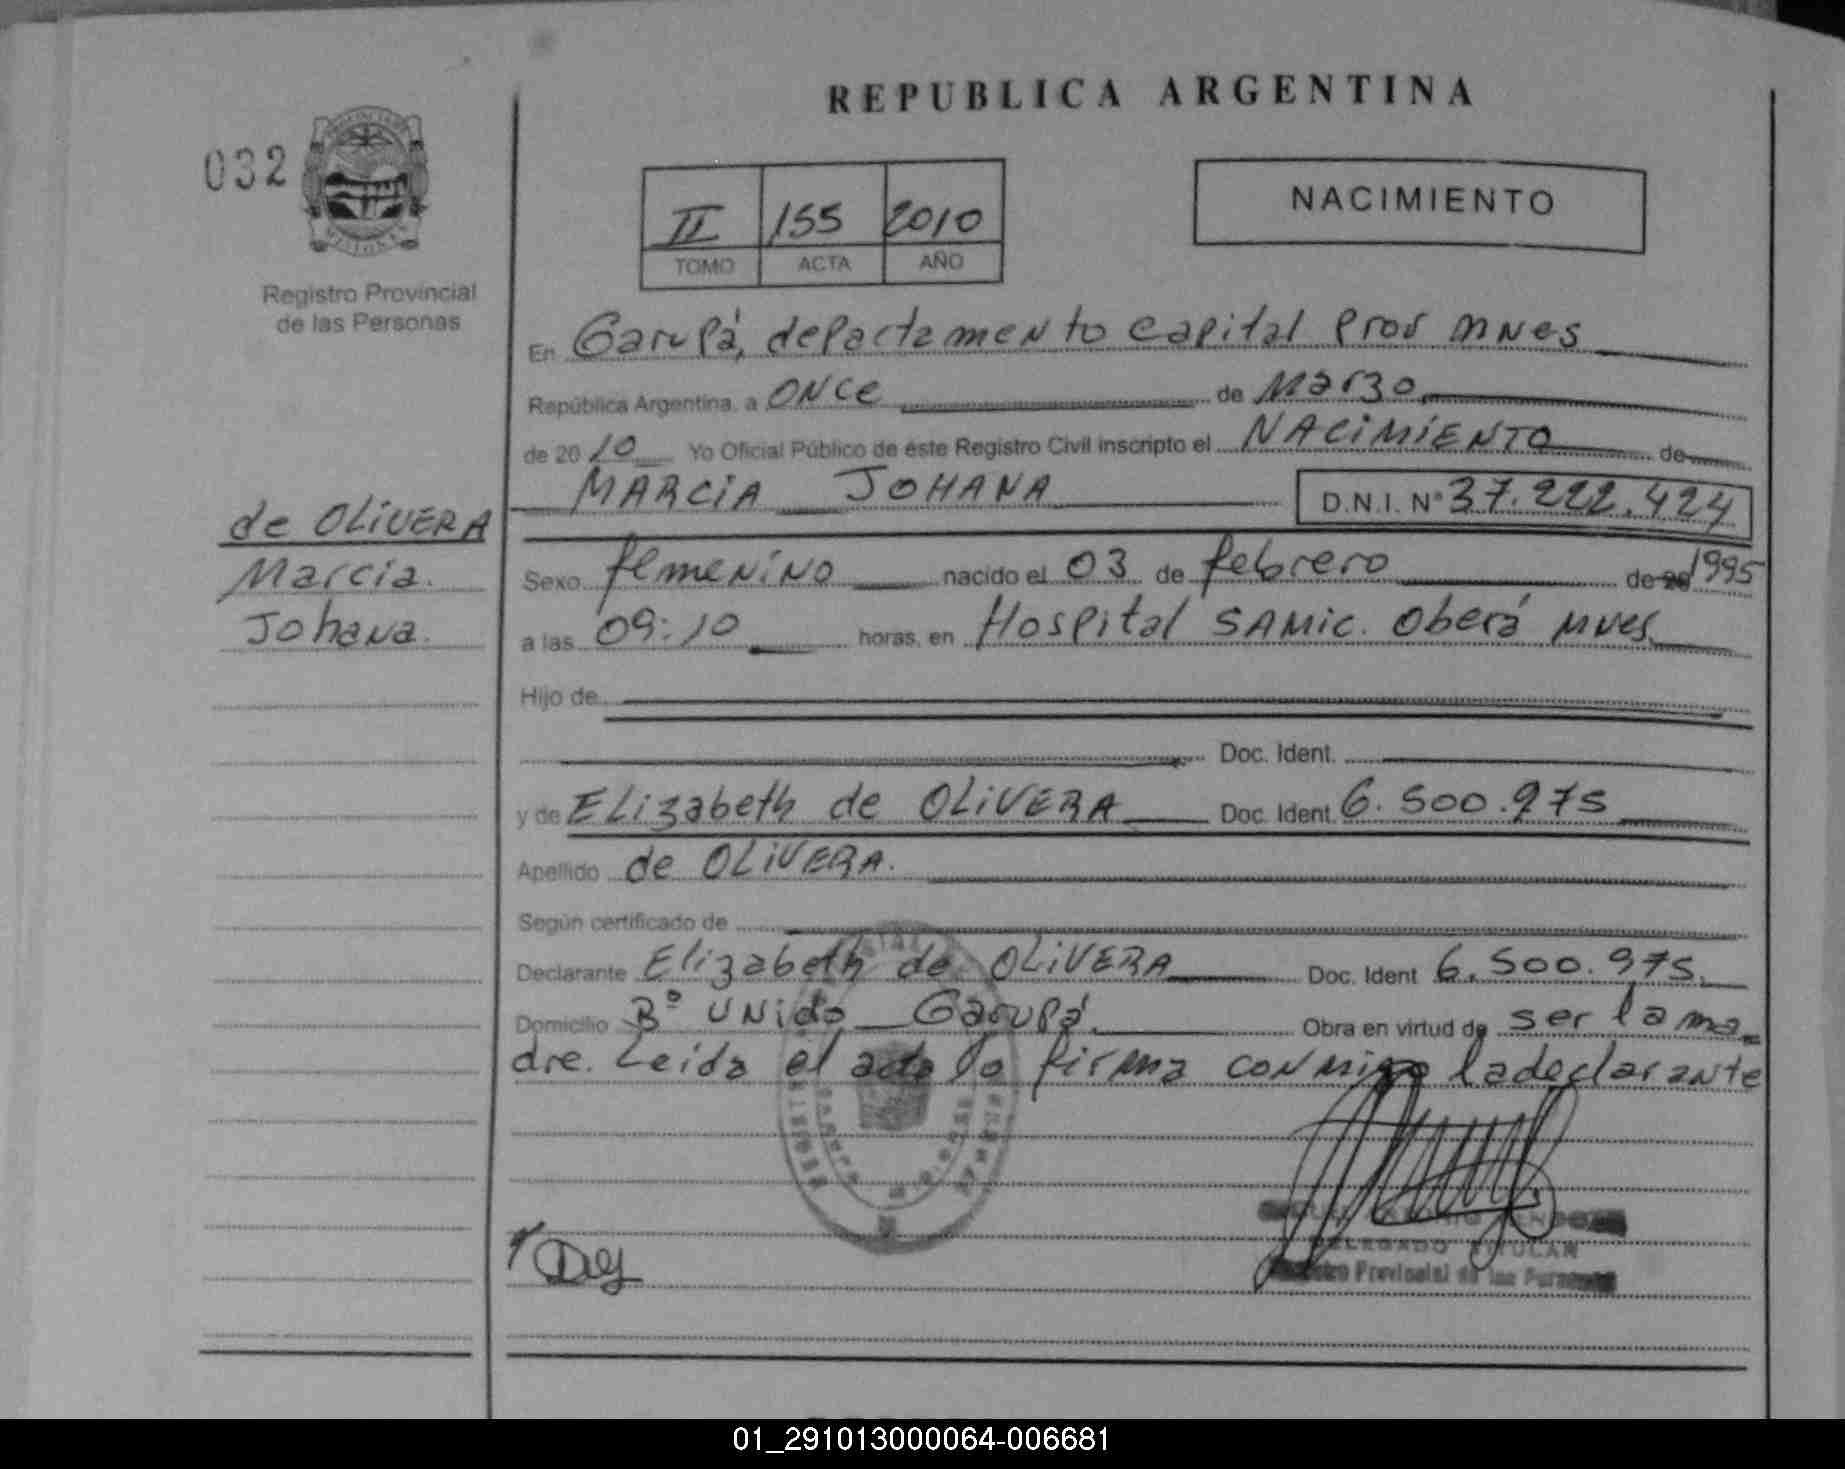 REPUBLICA ARGENTINA
032
II 155 2010
TOMO ACTA AÑO
NACIMIENTO
MISIONES
Registro Provincial
de las Personas
En Garupá, departamento capital Prov mnes
República Argentina, a once de Marzo
de 2010 Yo Oficial Público de éste Registro Civil inscripto el NACIMIENTO de
MARCIA JOHANA D.N.I. Nº 37.222.424
de OLIVERA
Marcia
Johana
Sexo femenino nacido el 03 de febrero de 20 1995
a las 09:10 horas, en Hospital SAMIC. Oberá mnes
Hijo de
Doc. Ident.
y de Elizabeth de OLIVERA Doc. Ident. 6.500.975
Apellido de OLIVERA.
Según certificado de
Declarante Elizabeth de OLIVERA Doc. Ident 6.500.975
Domicilio Bº Unido Garupá Obra en virtud de ser la ma
dre. Leida el acta la firma conmigo la declarante
DELEGADO TITULAR
Registro Provincial de las Personas
01_291013000064-006681